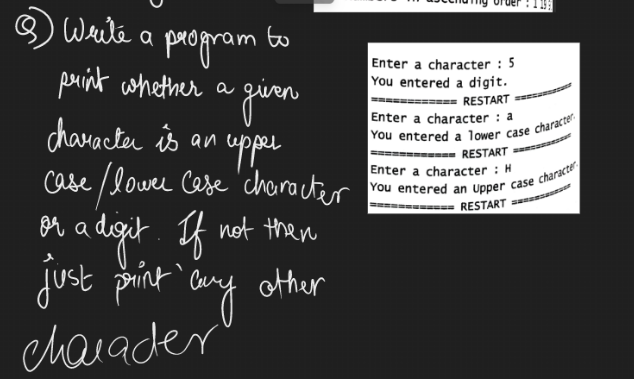 ascending order : 1 19
Q) Write a program to
print whether a given
character is an upper
case/lower case character
or a digit. If not then
just print 'any other
character
Enter a character : 5
You entered a digit.
============ RESTART ========
Enter a character : a
You entered a lower case character.
============ RESTART ========
Enter a character : H
You entered an Upper case character.
============ RESTART ========